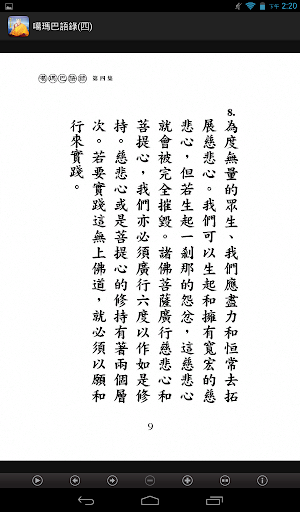 下午 2:20
噶瑪巴語錄(四)
噶瑪巴語錄 第四集
8.
為度無量的眾生、我們應盡力和恒常去拓
展慈悲心。我們可以生起和擁有寬宏的慈
悲心,但若生起一剎那的怨忿,這慈悲心
就會被完全摧毀。諸佛菩薩廣行慈悲心和
菩提心,我們亦必須廣行六度以作如是修
持。慈悲心或是菩提心的修持有著兩個層
次。若要實踐這無上佛道,就必須以願和
行來實踐。
9